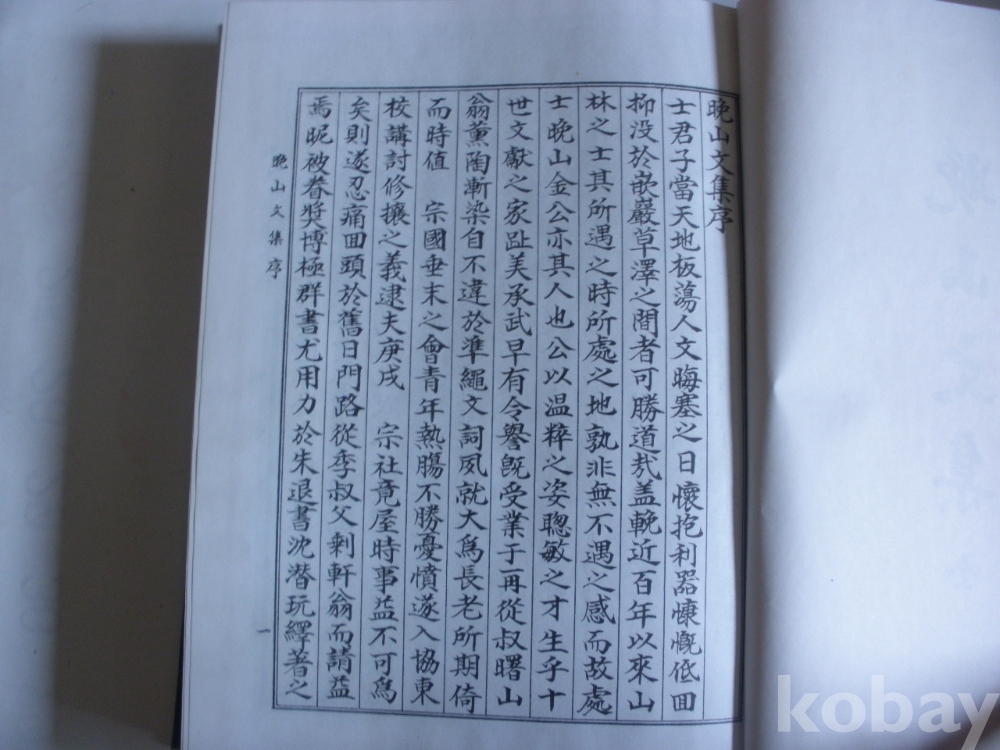 晩山文集序
士君子當天地板蕩人文晦塞之日懷抱利器慷慨低回
抑没於嵌巖草澤之間者可勝道㢤盖輓近百年以來山
林之士其所遇之時所處之地孰非無不遇之感而故處
士晩山金公亦其人也公以温粹之姿聰敏之才生乎十
世文獻之家趾美承武早有令譽旣受業于再從叔曙山
翁薰陶漸染自不違於準繩文詞夙就大爲長老所期倚
而時值 宗國垂末之會青年熱膓不勝憂憤遂入協東
校講討修攘之義逮夫庚戌 宗社竟屋時事益不可爲
矣則遂忍痛回頭於舊日門路從季叔父剩軒翁而請益
焉昵被眷奬博極群書尤用力於朱退書沈潜玩繹著之
晩山文集序
一
kobay